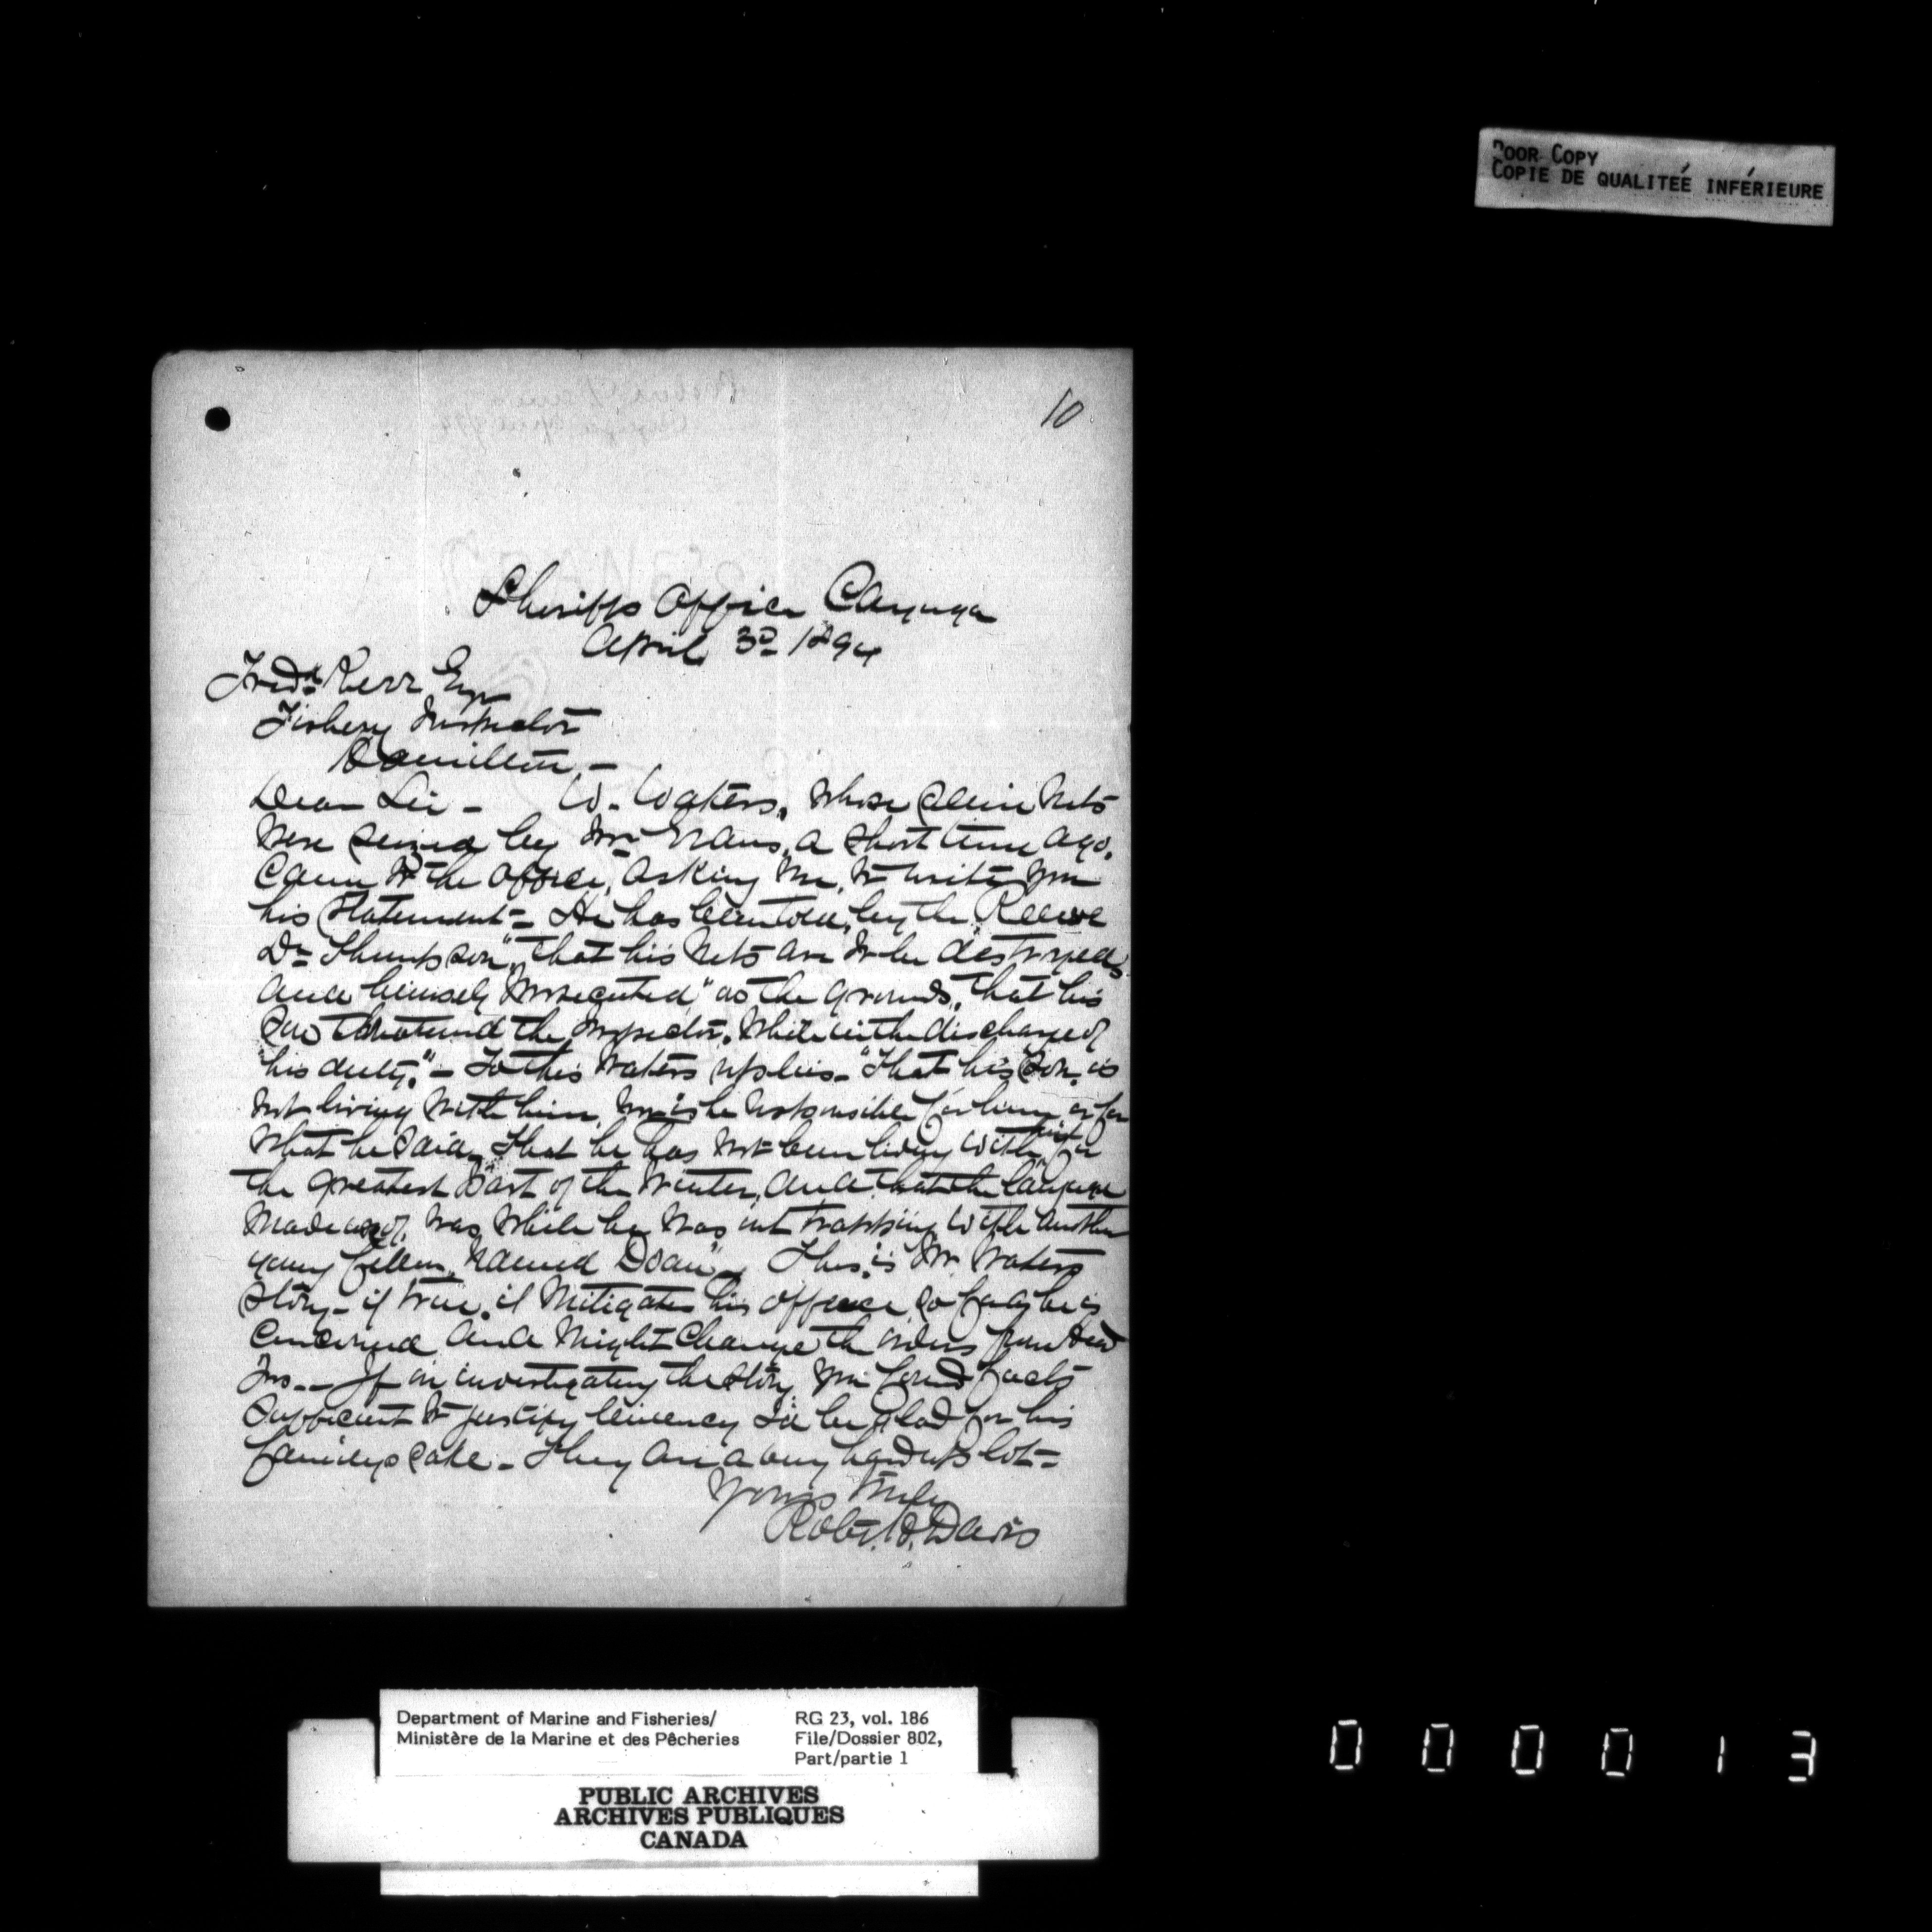 POOR COPY
COPIE DE QUALITEÉ INFÉRIEURE
10
Sheriffs Office Cayuga
April 3d 1894
Fredk Kerr Esqr
Fishery Inspector
Hamilton -
Dear Sir - W. Waters, whose seine nets
were seized by Mr Evans, a short time ago,
came to the office, asking me, to write you
his statement - He has been told, by the Reeve
Dr Thompson, "that his nets are to be destroyed
and himself prosecuted" as the grounds, "that his
son threatened the Inspector, while in the discharge of
his duty." - To this Waters replies - "That his son, is
not living with him, nor is he responsible for him or for
what he said, that he has not been living with him for
the greatest part of the winter, and that the language
made use of, was while he was out trapping with another
young fellow, named Doan" - This, is Mr Waters
story - if true, it mitigates his offence so far as he is
concerned and might change the orders from Head
Qrs. - If in investigating the story you found facts
sufficient to justify leniency I'd be glad for his
familys sake - They are a very hard up lot -
Yours truly
Robt. H. Davis
Department of Marine and Fisheries/
Ministère de la Marine et des Pêcheries
RG 23, vol. 186
File/Dossier 802,
Part/partie 1
PUBLIC ARCHIVES
ARCHIVES PUBLIQUES
CANADA
000013